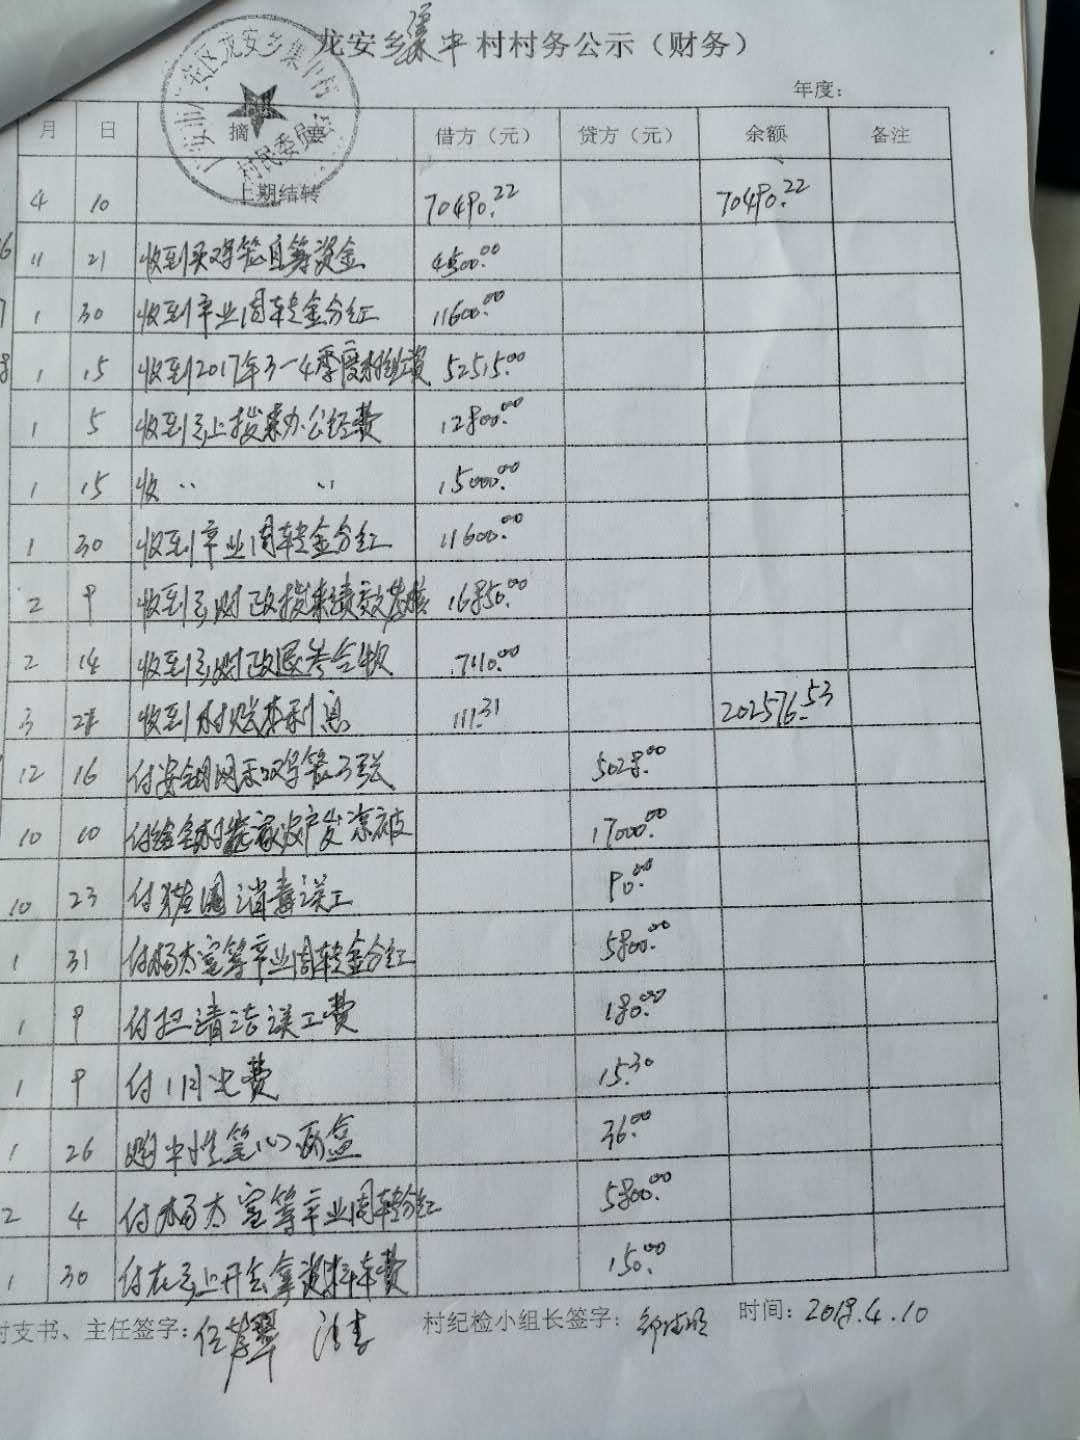 龙安乡集中村村务公示（财务）
年度：
月 日 摘要 借方（元） 贷方（元） 余额 备注
4 10 上期结转 70490.22 70490.22
11 21 收到买 自筹资金 4500.00
1 30 收到产业周转金分红 11600.00
1 15 收到2017年3-4季度 52515.00
1 5 收到乡上拨来办公经费 12800.00
1 15 收 〃 〃 15000.00
1 30 收到产业周转金分红 11600.00
2 9 收到乡财政拨来绩效 16850.00
2 14 收到乡财政 7110.00
3 21 收到村账本利息 111.31 202576.53
12 16 付安 3 5028.00
10 10 付给全村 农户发凉被 17000.00
10 23 付猪圈消毒误工 90.00
1 31 付杨太室等产业周转金分红 5800.00
1 9 付 清洁误工费 180.00
1 9 付11月电费 15.30
1 26 购中性笔心两盒 36.00
2 4 付杨太室等产业周转分红 5800.00
1 30 付在乡上开会拿资料车费 150.00
村支书、主任签字： 村纪检小组长签字： 时间：2018.4.10